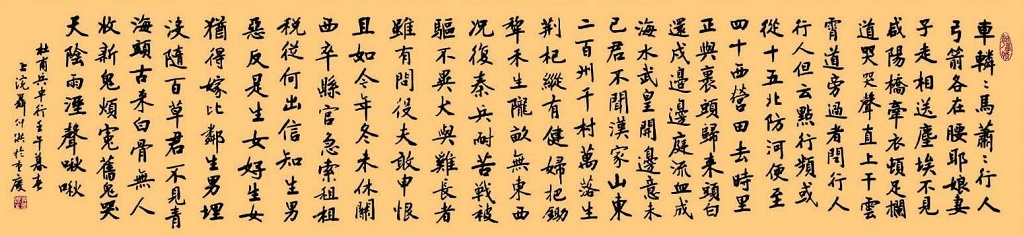 車轔：馬蕭：行人
弓箭各在腰耶娘妻
子走相送塵埃不見
咸陽橋牽衣頓足攔
道哭哭聲直上干雲
霄道旁過者問行人
行人但云點行頻或
從十五北防河便至
四十西營田去時里
正與裹頭歸来頭白
還戍邊邊庭流血成
海水武皇開邊意未
已君不聞漢家山東
二百州千村萬落生
荆杞縱有健婦把鋤
犂禾生隴畝無東西
況復秦兵耐苦戰被
驅不異犬與雞長者
雖有問役夫敢申恨
且如今年冬未休關
西卒縣官急索租租
税從何出信知生男
惡反是生女好生女
猶得嫁比鄰生男埋
没隨百草君不見青
海頭古来白骨無人
收新鬼煩冤舊鬼哭
天陰雨溼聲啾啾
杜甫兵車行壬午暮春